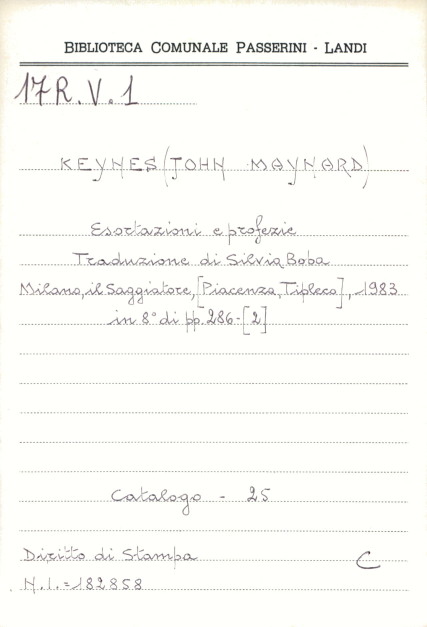 BIBLIOTECA COMUNALE PASSERINI - LANDI
17R.V.1
KEYNES (JOHN MAYNARD)
Esortazioni e profezie
Traduzione di Silvia Boba
Milano, il Saggiatore, [Piacenza, Tipleco], 1983
in 8° di pp. 286-[2]
Catalogo - 25
Diritto di Stampa C
N.I.=182858